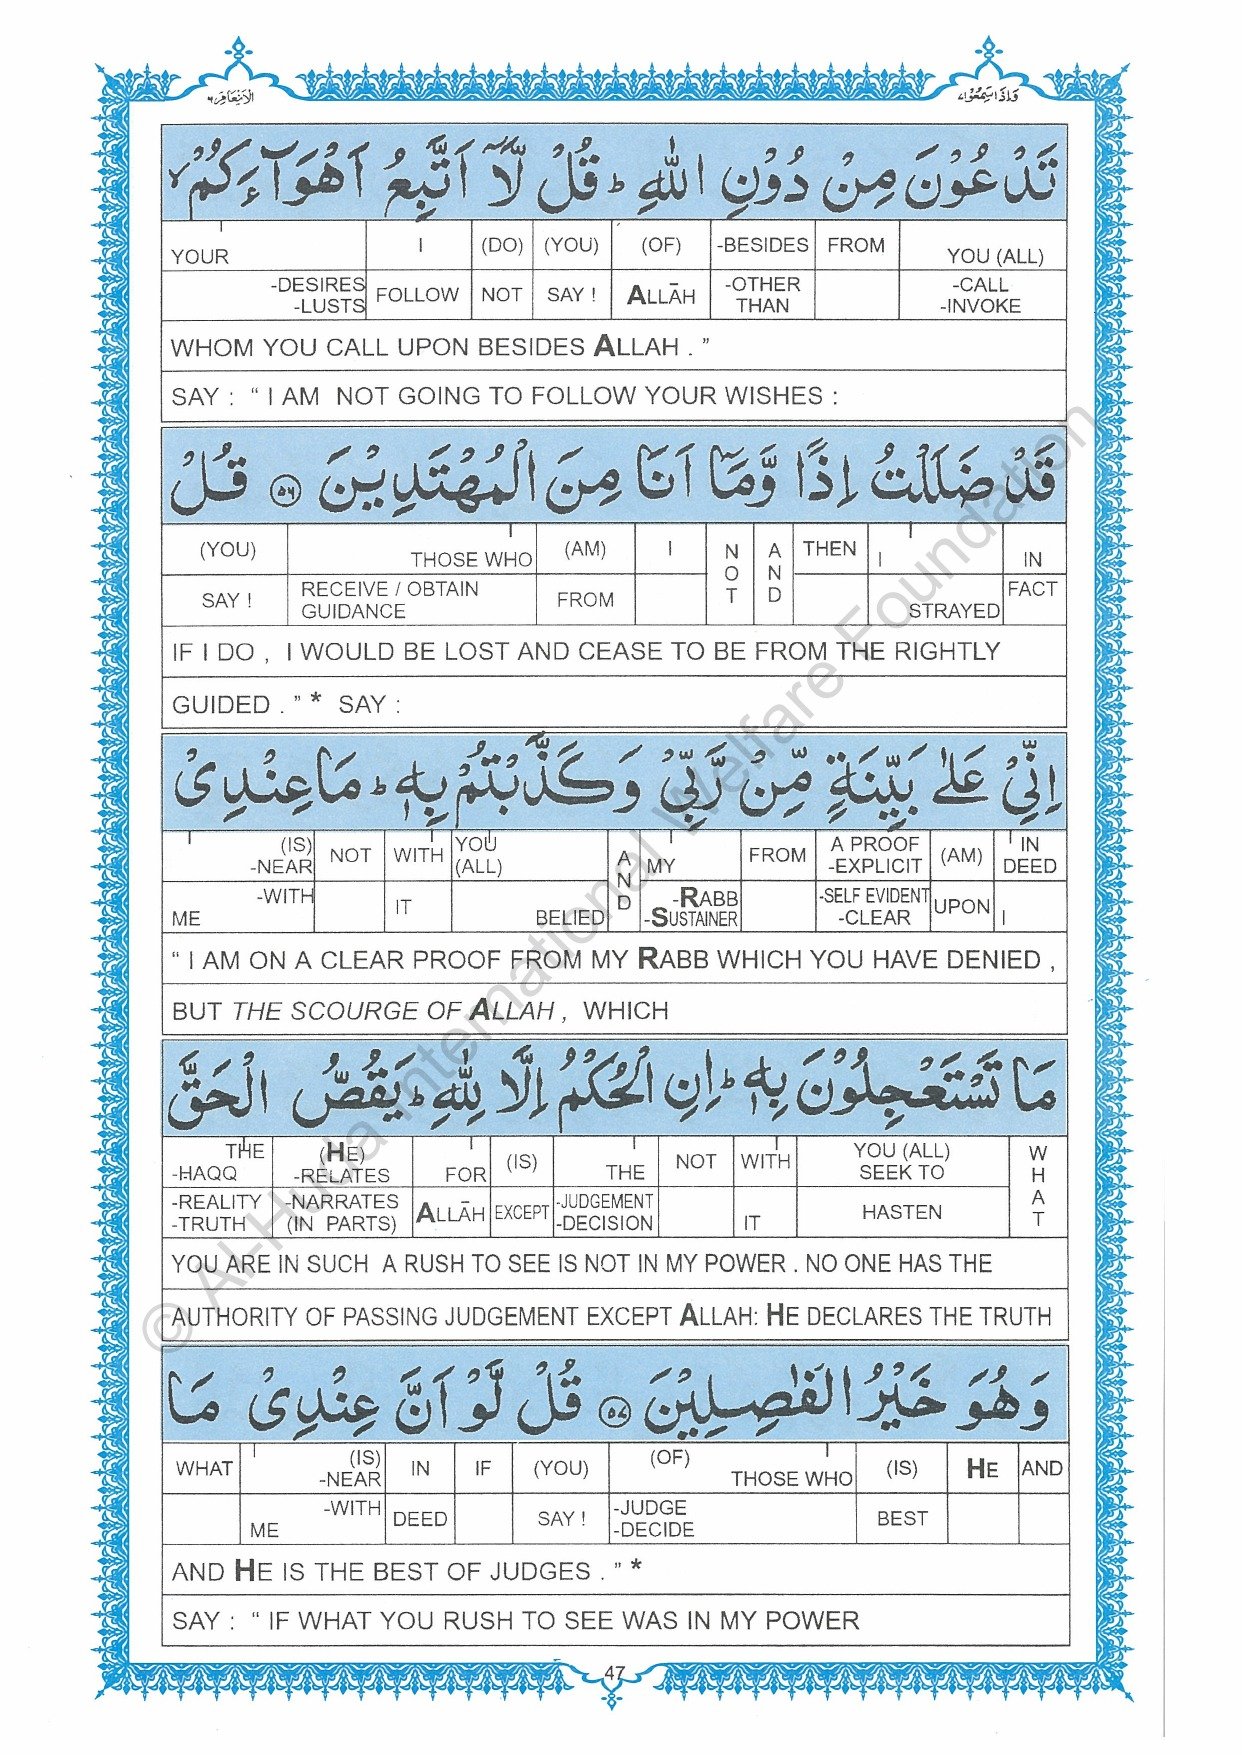 وَاِذَا سَمِعُوْا ٧
الْاَنْعَام ٦
تَدْعُوْنَ مِنْ دُوْنِ اللّٰهِ ؕ قُلْ لَّاۤ اَتَّبِعُ اَهْوَآءَكُمْ ۙ
YOUR I (DO) (YOU) (OF) -BESIDES FROM YOU (ALL)
-DESIRES -LUSTS FOLLOW NOT SAY ! ALLĀH -OTHER THAN -CALL -INVOKE
WHOM YOU CALL UPON BESIDES ALLAH . ”
SAY : “ I AM NOT GOING TO FOLLOW YOUR WISHES :
قَدْ ضَلَلْتُ اِذًا وَّمَاۤ اَنَا مِنَ الْمُهْتَدِيْنَ ۝٥٦ قُلْ
(YOU) THOSE WHO (AM) I NOT AND THEN I IN
SAY ! RECEIVE / OBTAIN GUIDANCE FROM STRAYED FACT
IF I DO , I WOULD BE LOST AND CEASE TO BE FROM THE RIGHTLY
GUIDED . ” * SAY :
اِنِّيْ عَلٰى بَيِّنَةٍ مِّنْ رَّبِّيْ وَكَذَّبْتُمْ بِهٖ ؕ مَا عِنْدِيْ
(IS) -NEAR NOT WITH YOU (ALL) AND MY FROM A PROOF -EXPLICIT (AM) IN DEED
ME -WITH IT BELIED -RABB -SUSTAINER -SELF EVIDENT -CLEAR UPON I
“ I AM ON A CLEAR PROOF FROM MY RABB WHICH YOU HAVE DENIED ,
BUT THE SCOURGE OF ALLAH , WHICH
مَا تَسْتَعْجِلُوْنَ بِهٖ ؕ اِنِ الْحُكْمُ اِلَّا لِلّٰهِ ؕ يَقُصُّ الْحَقَّ
THE -HAQQ (HE) -RELATES FOR (IS) THE NOT WITH YOU (ALL) SEEK TO WHAT
-REALITY -TRUTH -NARRATES (IN PARTS) ALLĀH EXCEPT -JUDGEMENT -DECISION IT HASTEN
YOU ARE IN SUCH A RUSH TO SEE IS NOT IN MY POWER . NO ONE HAS THE
AUTHORITY OF PASSING JUDGEMENT EXCEPT ALLAH: HE DECLARES THE TRUTH
وَهُوَ خَيْرُ الْفٰصِلِيْنَ ۝٥٧ قُلْ لَّوْ اَنَّ عِنْدِيْ مَا
WHAT (IS) -NEAR IN IF (YOU) (OF) THOSE WHO (IS) HE AND
ME -WITH DEED SAY ! -JUDGE -DECIDE BEST
AND HE IS THE BEST OF JUDGES . ” *
SAY : “ IF WHAT YOU RUSH TO SEE WAS IN MY POWER
47
© Al-Huda International Welfare Foundation